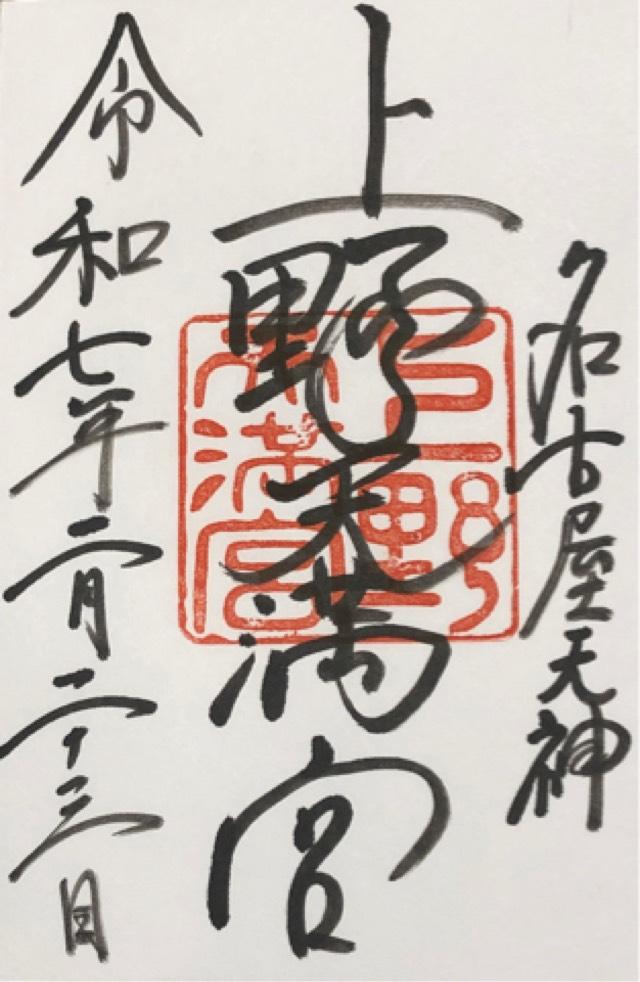 名古屋天神
上野天満宮
上野
天満宮
令和七年二月二十三日